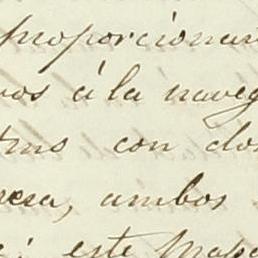 proporcionan
vos á la naveg
tros con dos
resa, ambos
este Mapa